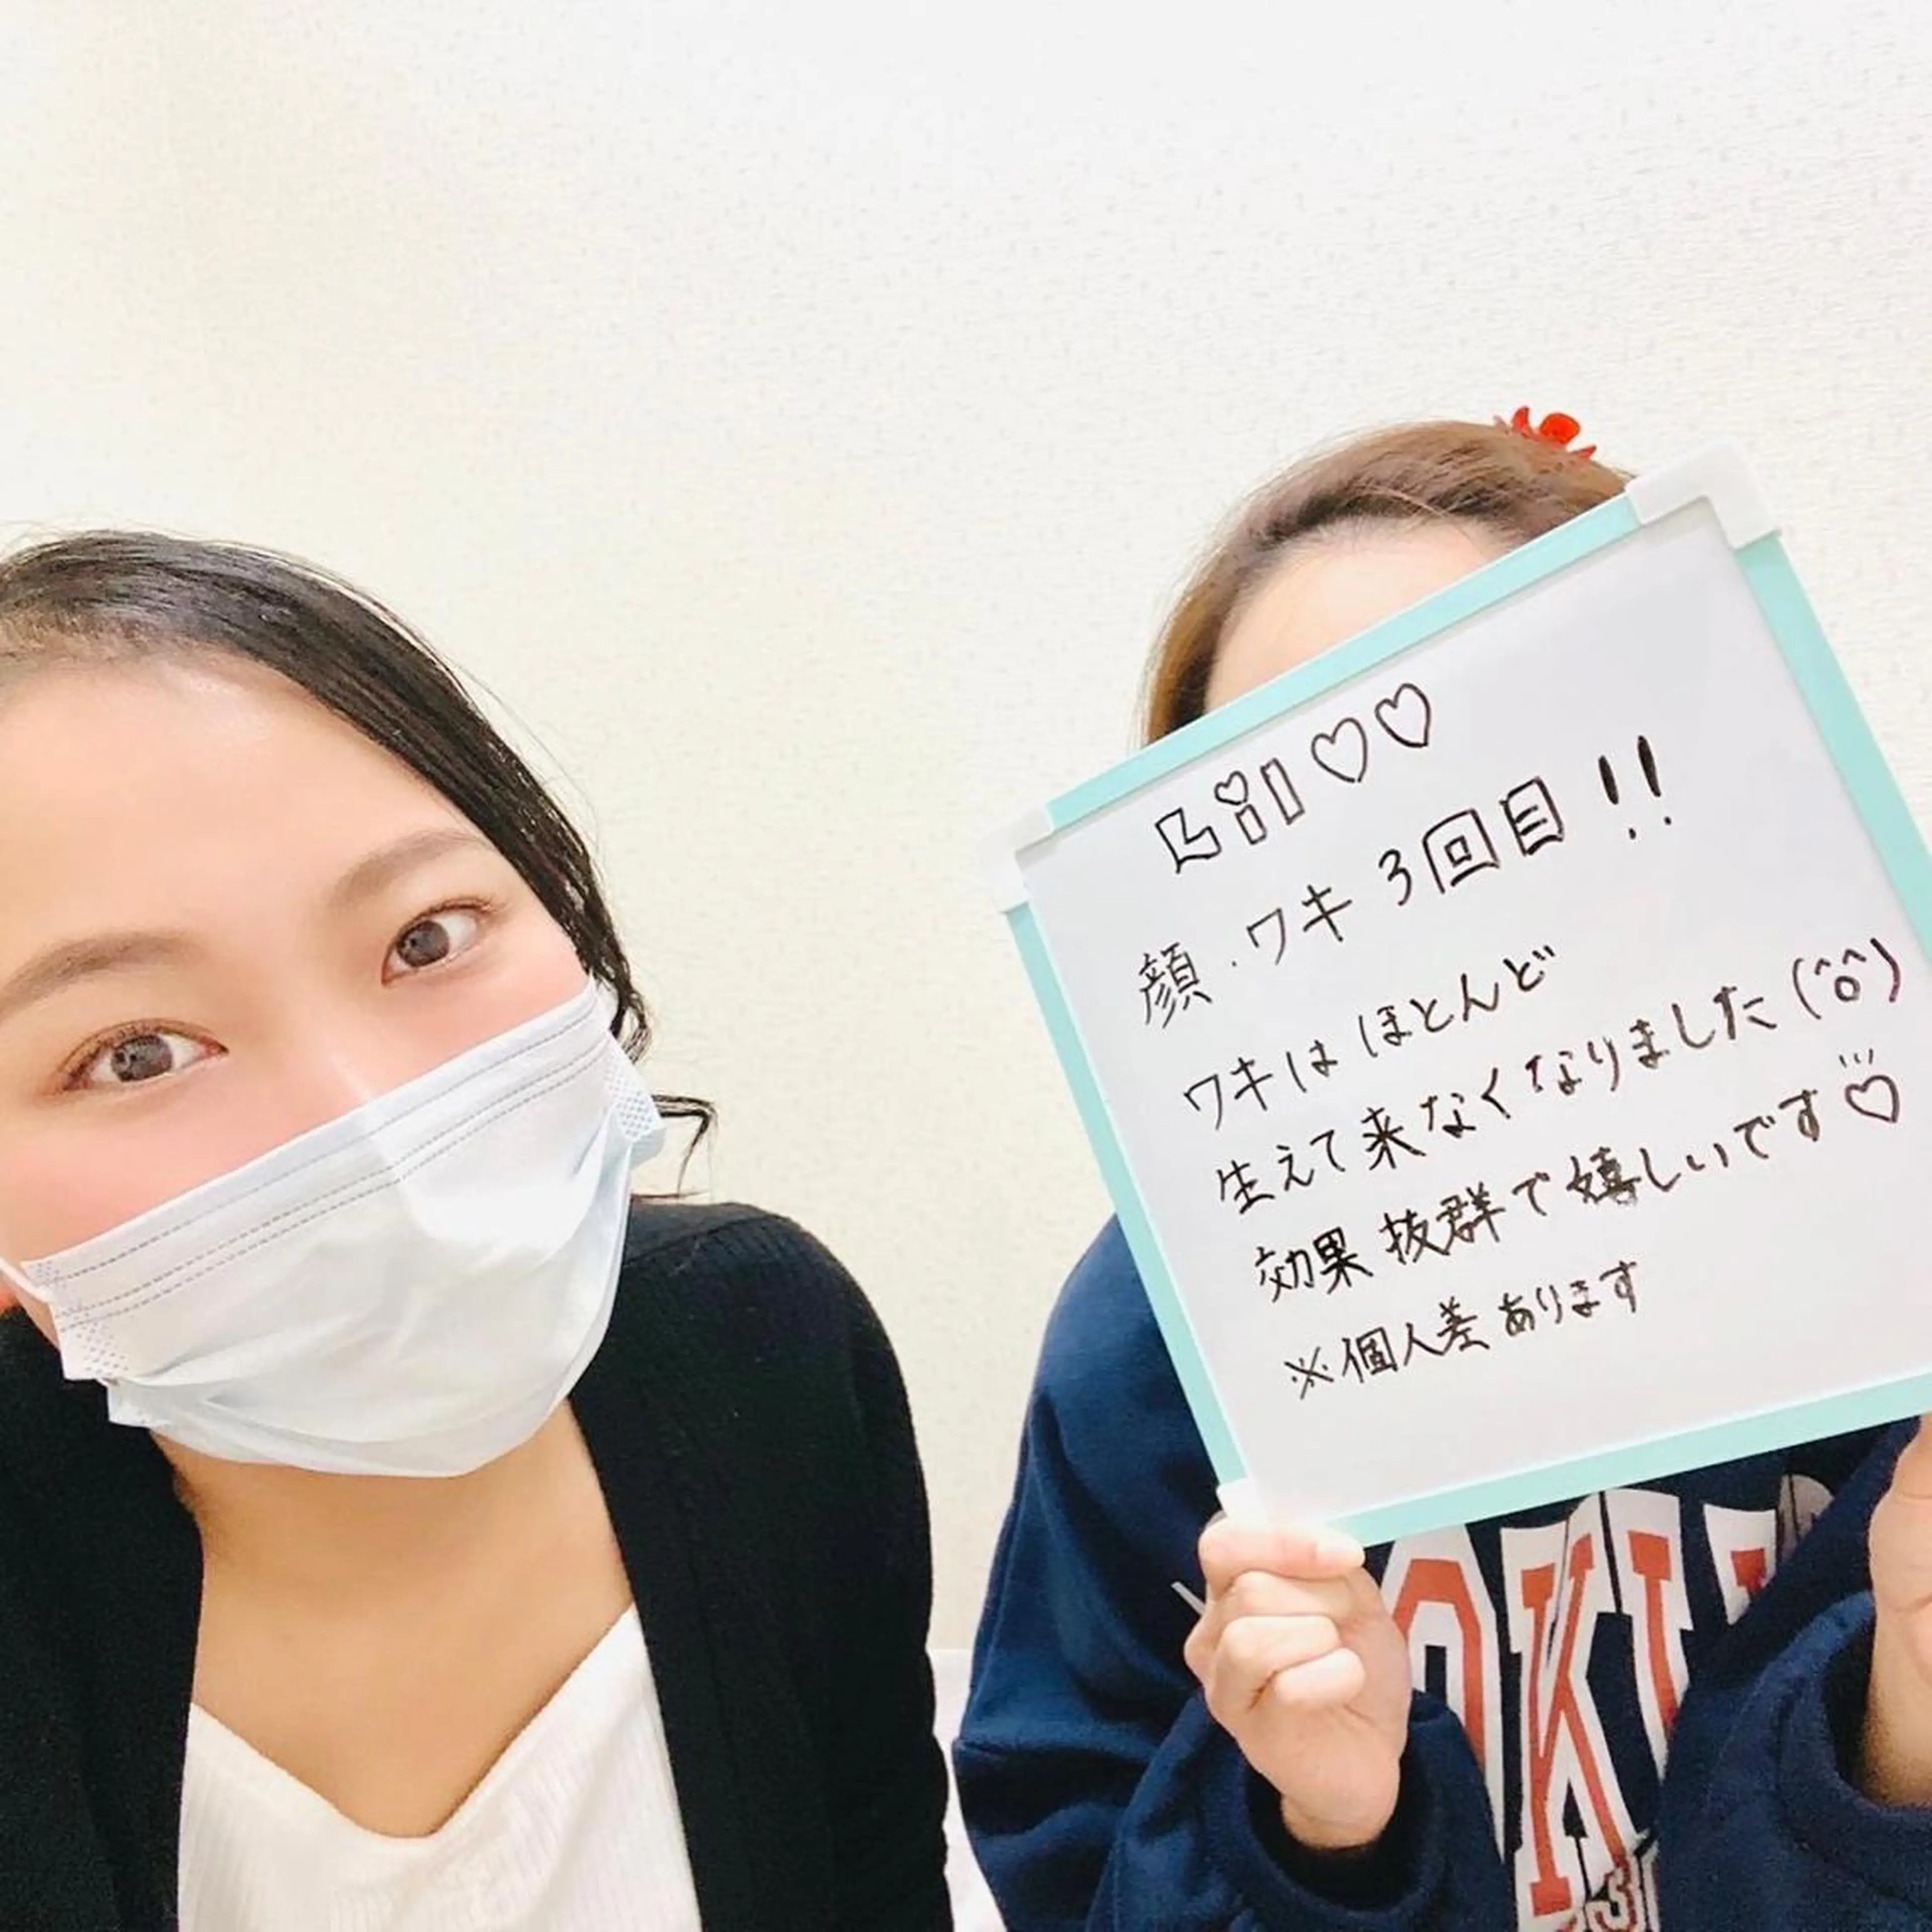 Lil♡♡
顔・ワキ 3回目!!
ワキは ほとんど
生えて来なくなりました(^o^)
効果抜群で嬉しいです♡
※個人差あります